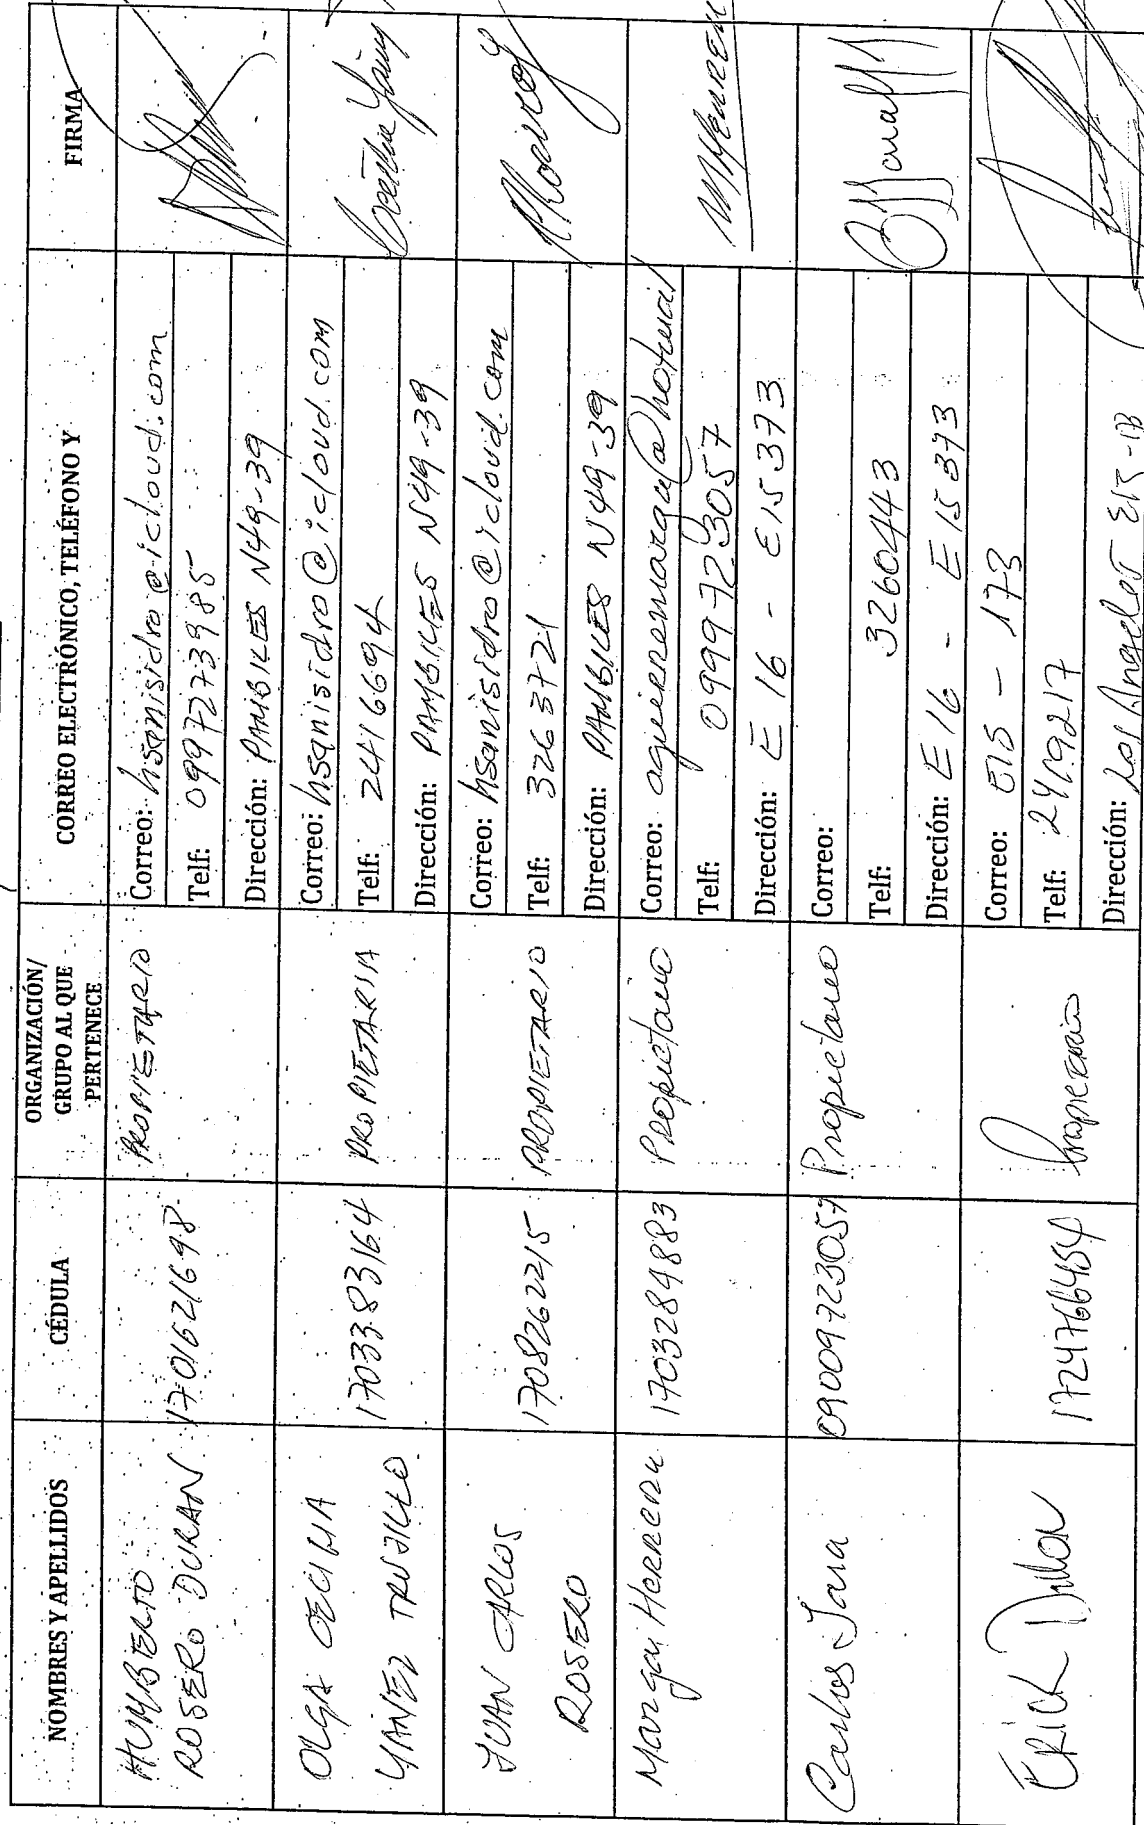 NOMBRES Y APELLIDOS CÉDULA ORGANIZACIÓN/ GRUPO AL QUE PERTENECE CORREO ELECTRÓNICO, TELÉFONO Y FIRMA
HUMBERTO
ROSERO DURAN 1701621698 PROPIETARIO
Correo: hsanisidro@icloud.com
Telf: 0997273985
Dirección: PAMBILES N49-39
OLGA CECILIA
YANEZ TRUJILLO 1703383164 PROPIETARIA
Correo: hsanisidro@icloud.com
Telf: 2416694
Dirección: PAMBILES N49-39
JUAN CARLOS
ROSERO 1708262215 PROPIETARIO
Correo: hsanisidro@icloud.com
Telf: 3263721
Dirección: PAMBILES N49-39
Margai Herrera 1703284883 Propietario
Correo: aguierremarga@hotmail
Telf: 0999723057
Dirección: E16 - E15373
MHerrera
Carlos Jara 0900972305 Propietario
Correo:
Telf: 3260443
Dirección: E16 - E15373
Erick 1724766454
Correo: E15 - 173
Telf: 2469217
Dirección: Los Angeles E15-